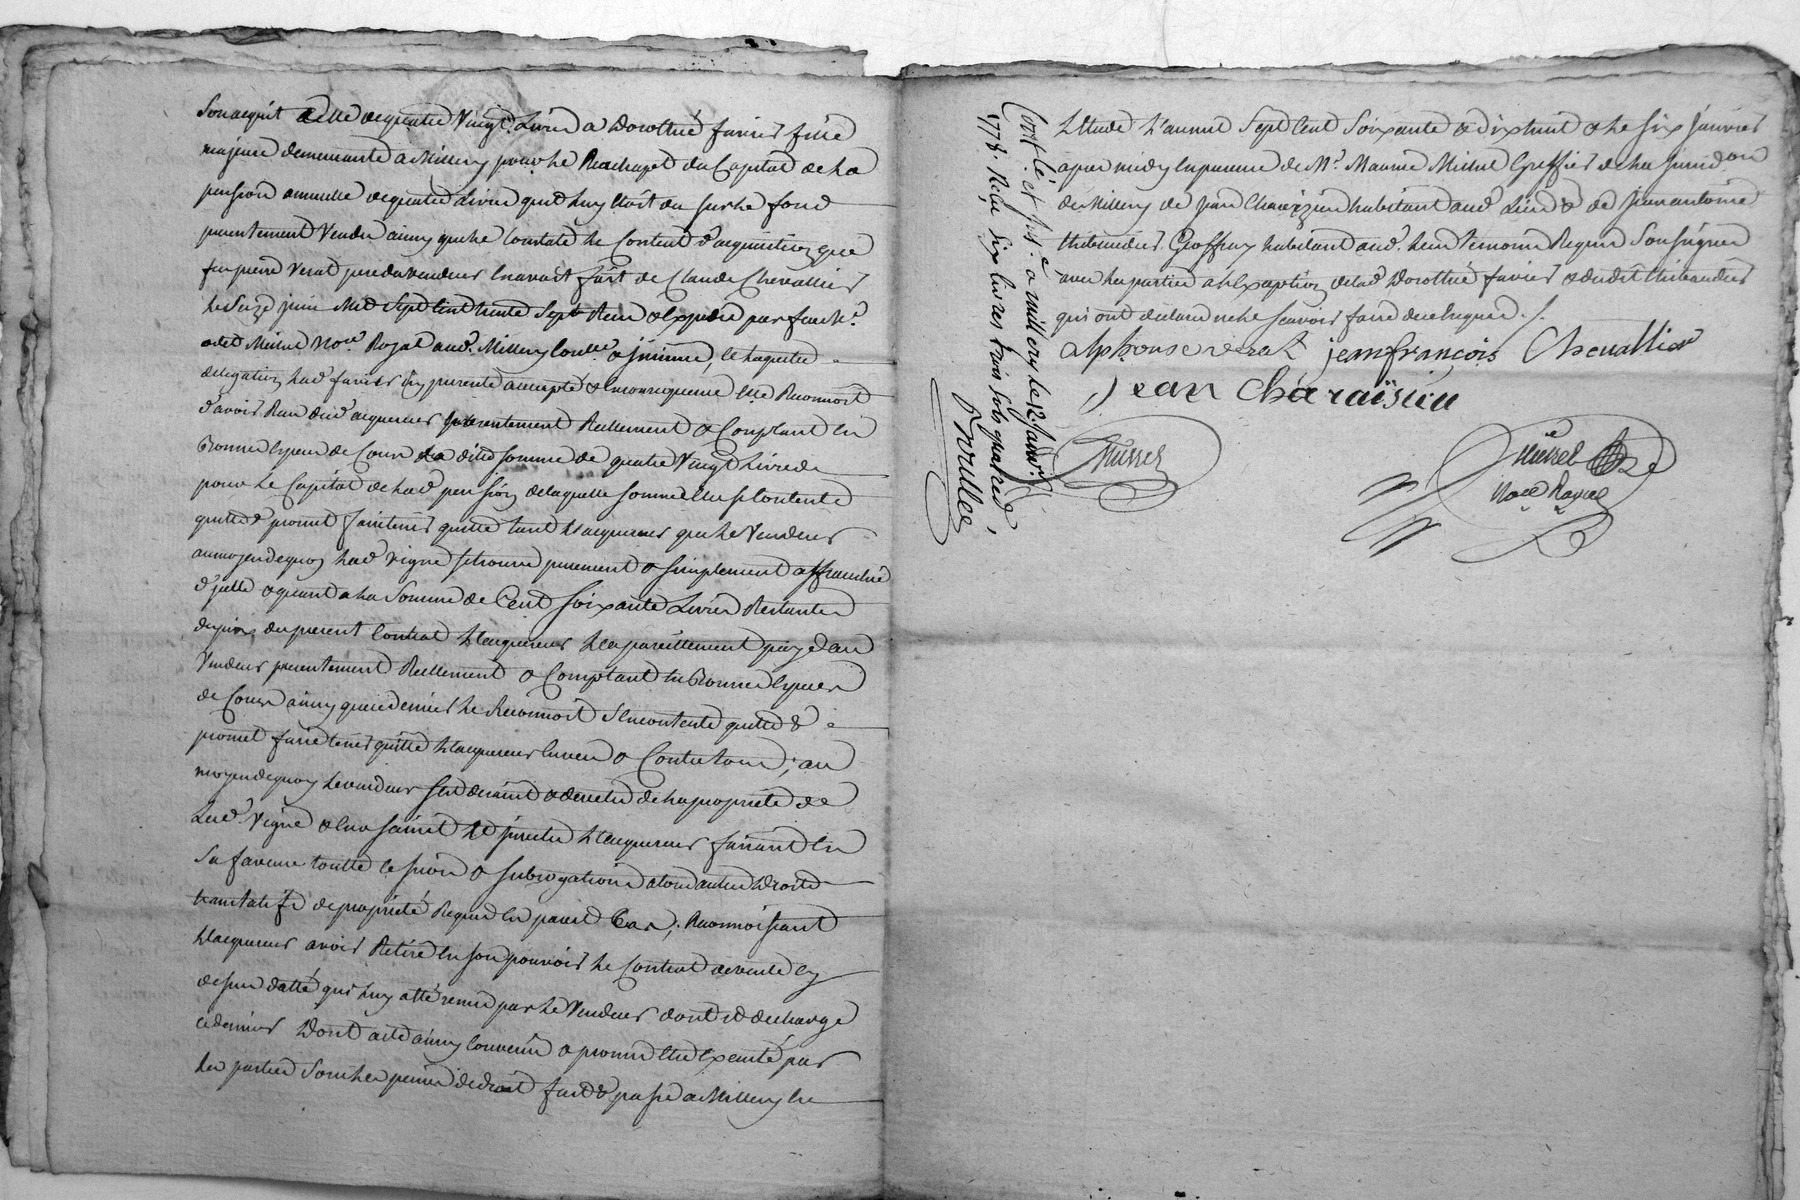 son acquit celle de quatre vingt Livres a Dorothée favier fille
majeure demeurante a Millery pour le Rachapt du Capital de la
pension annuelle de quatre Livres quil luy étoit du sur le fond
presentement vendu ainsy que le constate le Contrat d'acquisition que
feu pierre verat pere du vendeur en avoit fait de Claude Chevallier
le seize juin Mil Sept Cent trente Sept Receu & expedié par feu Me
Michel Nore Royal aud. Millery Conllé a , la quelle
delegation lad favier icy presente accepte & en consequence elle Reconnoit
d'avoir Receu dud acquereur presentement Reellement & Comptant en
Bonnes especes de Cours la dite somme de quatre vingt Livres
pour le Capital de lad pension de laquelle somme elle se Contente
quitte & promet faire tenir quitte tant Lacquereur que le Vendeur
au moyen de quoy lad vigne se trouve purement & simplement affranchie
d'jcelle & quant a la Somme de Cent soixante Livres Restantes
du prix du present Contrat Lacquereur l'a pareillement payé au
Vendeur presentement Reellement & Comptant en Bonnes especes
de Cours ainsy que ce dernier le Reconnoit s'en contente quitte &
promet faire tenir quitte Lacquereur envers & Contre tous ; au
moyen de quoy le vendeur s'est demis & devetu de la propriété de
Lad. Vigne & en a saisi & jnvetu Lacquereur faisant en
Sa faveur toutte cession & subrogation a tous autres Droits
translatifs de propriété Requis en pareil Cas ; Reconnoissant
Lacquereur avoir Retiré en son pouvoir le Contrat de vente cy
dessus datté qui luy a été remis par le Vendeur dont il decharge
ce dernier Dont acte ainsy convenu & promis etre executé par
les parties sous les peines de droit fait & passé a Millery en
Contlé et jns. a millery le 12 janvr.
1778. Recu six livres trois sols quatre d.,
Brullee
L'Etude L'année Sept Cent Soixante & dixhuit & le six janvier
apres midy en presence de Mr. Maurice Michel Greffier de la jurisdon
de Millery de jean Charézieu habitant aud. Lieu & de jean antoine
thibaudier Geoffray habitant aud. lieu temoins Requis Soussignés
avec les parties a L'Exception de lad Dorothée favier & dudit thibaudier
qui ont declaré ne le sçavoir faire de ce enquis ./.
alphonse verat jean françois Chevallier
jean Charaïsieu
Michel
Nore Royal